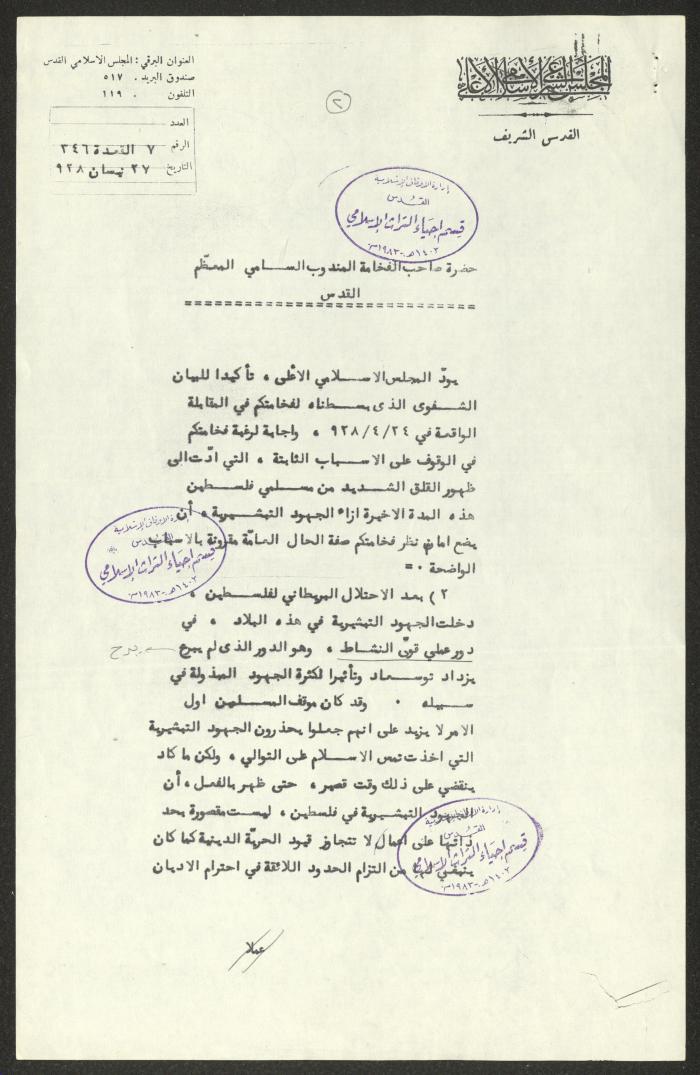 المجلس الشرعي الإسلامي الأعلى
القدس الشريف
العنوان البرقي : المجلس الاسلامي القدس
صندوق البريد . ٥١٧
التلفون . ١١٩
العدد
الرقم ٧ القعدة ٣٤٦
التاريخ ٢٧ نيسان ٩٢٨
٢
إدارة الأوقاف الإسلامية
القدس
قسم إحياء التراث الإسلامي
١٤٠٢هـ-١٩٨٣م
حضرة صاحب الفخامة المندوب السامي المعظّم
القدس
يودّ المجلس الاسلامي الأعلى ، تأكيدا للبيان
الشفوى الذى بسطناه لفخامتكم في المقابلة
الواقعة في ٩٢٨/٤/٢٤ ، واجابة لرغبة فخامتكم
في الوقوف على الاسباب الثابتة ، التي ادّت الى
ظهور القلق الشديد من مسلمي فلسطين
هذه المدة الاخيرة ازاء الجهود التبشيرية ، أن
يضع امام نظر فخامتكم صفة الحال العامّة مقرونة بالاسباب
الواضحة . =
إدارة الأوقاف الإسلامية
القدس
قسم إحياء التراث الإسلامي
١٤٠٢هـ-١٩٨٣م
٢ ) بعد الاحتلال البريطاني لفلسطين ،
دخلت الجهود التبشيرية في هذه البلاد ، في
دور عملي قويّ النشاط ، وهو الدور الذى لم يبرح
يبرح
يزداد توسعاد وتأثيرا لكثرة الجهود المبذولة في
سبيله . وقد كان موقف المسلمين اول
الامر لا يزيد على انهم جعلوا يحذرون الجهود التبشيرية
التي اخذت تمس الاسلام على التوالي ، ولكن ما كاد
ينقضي على ذلك وقت قصير ، حتى ظهر بالفعل ، أن
الجهود التبشيرية في فلسطين ، ليست مقصورة بحد
ذاتها على اعمال لا تتجاوز قيود الحريّة الدينية كما كان
ينبغي لها من التزام الحدود اللائقة في احترام الاديان
إدارة الأوقاف الإسلامية
القدس
قسم إحياء التراث الإسلامي
١٤٠٢هـ-١٩٨٣م
عملا